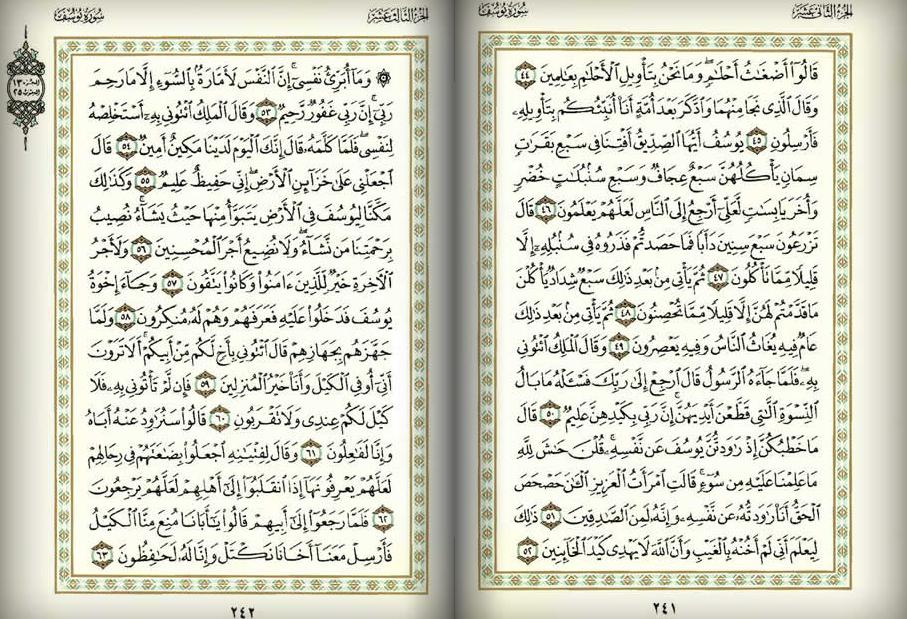 الجزء الثاني عشر
سورة يوسف
قَالُوٓا۟ أَضْغَٰثُ أَحْلَٰمٍ ۖ وَمَا نَحْنُ بِتَأْوِيلِ ٱلْأَحْلَٰمِ بِعَٰلِمِينَ ٤٤
وَقَالَ ٱلَّذِى نَجَا مِنْهُمَا وَٱدَّكَرَ بَعْدَ أُمَّةٍ أَنَا۠ أُنَبِّئُكُم بِتَأْوِيلِهِۦ
فَأَرْسِلُونِ ٤٥ يُوسُفُ أَيُّهَا ٱلصِّدِّيقُ أَفْتِنَا فِى سَبْعِ بَقَرَٰتٍ
سِمَانٍ يَأْكُلُهُنَّ سَبْعٌ عِجَافٌ وَسَبْعِ سُنۢبُلَٰتٍ خُضْرٍ
وَأُخَرَ يَابِسَٰتٍ لَّعَلِّىٓ أَرْجِعُ إِلَى ٱلنَّاسِ لَعَلَّهُمْ يَعْلَمُونَ ٤٦ قَالَ
تَزْرَعُونَ سَبْعَ سِنِينَ دَأَبًا فَمَا حَصَدتُّمْ فَذَرُوهُ فِى سُنۢبُلِهِۦٓ إِلَّا
قَلِيلًا مِّمَّا تَأْكُلُونَ ٤٧ ثُمَّ يَأْتِى مِنۢ بَعْدِ ذَٰلِكَ سَبْعٌ شِدَادٌ يَأْكُلْنَ
مَا قَدَّمْتُمْ لَهُنَّ إِلَّا قَلِيلًا مِّمَّا تُحْصِنُونَ ٤٨ ثُمَّ يَأْتِى مِنۢ بَعْدِ ذَٰلِكَ
عَامٌ فِيهِ يُغَاثُ ٱلنَّاسُ وَفِيهِ يَعْصِرُونَ ٤٩ وَقَالَ ٱلْمَلِكُ ٱئْتُونِى
بِهِۦ ۖ فَلَمَّا جَآءَهُ ٱلرَّسُولُ قَالَ ٱرْجِعْ إِلَىٰ رَبِّكَ فَسْـَٔلْهُ مَا بَالُ
ٱلنِّسْوَةِ ٱلَّٰتِى قَطَّعْنَ أَيْدِيَهُنَّ ۚ إِنَّ رَبِّى بِكَيْدِهِنَّ عَلِيمٌ ٥٠ قَالَ
مَا خَطْبُكُنَّ إِذْ رَٰوَدتُّنَّ يُوسُفَ عَن نَّفْسِهِۦ ۚ قُلْنَ حَٰشَ لِلَّهِ
مَا عَلِمْنَا عَلَيْهِ مِن سُوٓءٍ ۚ قَالَتِ ٱمْرَأَتُ ٱلْعَزِيزِ ٱلْـَٰٔنَ حَصْحَصَ
ٱلْحَقُّ أَنَا۠ رَٰوَدتُّهُۥ عَن نَّفْسِهِۦ وَإِنَّهُۥ لَمِنَ ٱلصَّٰدِقِينَ ٥١ ذَٰلِكَ
لِيَعْلَمَ أَنِّى لَمْ أَخُنْهُ بِٱلْغَيْبِ وَأَنَّ ٱللَّهَ لَا يَهْدِى كَيْدَ ٱلْخَآئِنِينَ ٥٢
٢٤١
الجزء الثالث عشر
سورة يوسف
۞ وَمَآ أُبَرِّئُ نَفْسِىٓ ۚ إِنَّ ٱلنَّفْسَ لَأَمَّارَةٌۢ بِٱلسُّوٓءِ إِلَّا مَا رَحِمَ
رَبِّىٓ ۚ إِنَّ رَبِّى غَفُورٌ رَّحِيمٌ ٥٣ وَقَالَ ٱلْمَلِكُ ٱئْتُونِى بِهِۦٓ أَسْتَخْلِصْهُ
لِنَفْسِى ۖ فَلَمَّا كَلَّمَهُۥ قَالَ إِنَّكَ ٱلْيَوْمَ لَدَيْنَا مَكِينٌ أَمِينٌ ٥٤ قَالَ
ٱجْعَلْنِى عَلَىٰ خَزَآئِنِ ٱلْأَرْضِ ۖ إِنِّى حَفِيظٌ عَلِيمٌ ٥٥ وَكَذَٰلِكَ
مَكَّنَّا لِيُوسُفَ فِى ٱلْأَرْضِ يَتَبَوَّأُ مِنْهَا حَيْثُ يَشَآءُ ۚ نُصِيبُ
بِرَحْمَتِنَا مَن نَّشَآءُ ۖ وَلَا نُضِيعُ أَجْرَ ٱلْمُحْسِنِينَ ٥٦ وَلَأَجْرُ
ٱلْءَاخِرَةِ خَيْرٌ لِّلَّذِينَ ءَامَنُوا۟ وَكَانُوا۟ يَتَّقُونَ ٥٧ وَجَآءَ إِخْوَةُ
يُوسُفَ فَدَخَلُوا۟ عَلَيْهِ فَعَرَفَهُمْ وَهُمْ لَهُۥ مُنكِرُونَ ٥٨ وَلَمَّا
جَهَّزَهُم بِجَهَازِهِمْ قَالَ ٱئْتُونِى بِأَخٍ لَّكُم مِّنْ أَبِيكُمْ ۚ أَلَا تَرَوْنَ
أَنِّىٓ أُوفِى ٱلْكَيْلَ وَأَنَا۠ خَيْرُ ٱلْمُنزِلِينَ ٥٩ فَإِن لَّمْ تَأْتُونِى بِهِۦ فَلَا
كَيْلَ لَكُمْ عِندِى وَلَا تَقْرَبُونِ ٦٠ قَالُوا۟ سَنُرَٰوِدُ عَنْهُ أَبَاهُ
وَإِنَّا لَفَٰعِلُونَ ٦١ وَقَالَ لِفِتْيَٰنِهِ ٱجْعَلُوا۟ بِضَٰعَتَهُمْ فِى رِحَالِهِمْ
لَعَلَّهُمْ يَعْرِفُونَهَآ إِذَا ٱنقَلَبُوٓا۟ إِلَىٰٓ أَهْلِهِمْ لَعَلَّهُمْ يَرْجِعُونَ
٦٢ فَلَمَّا رَجَعُوٓا۟ إِلَىٰٓ أَبِيهِمْ قَالُوا۟ يَٰٓأَبَانَا مُنِعَ مِنَّا ٱلْكَيْلُ
فَأَرْسِلْ مَعَنَآ أَخَانَا نَكْتَلْ وَإِنَّا لَهُۥ لَحَٰفِظُونَ ٦٣
٢٤٢